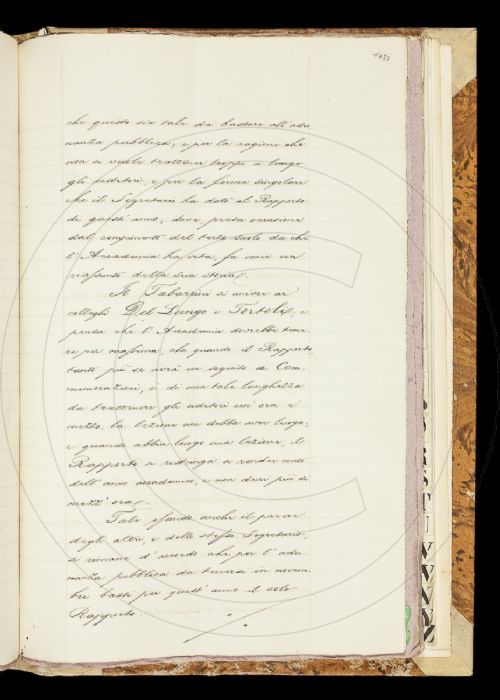 1051
che questo sia tale da bastare all'adu
nanza pubblica, e per la ragione che
non si vuole trattener troppo a lungo
gli uditori, e per la forma singolare
che il Segretario ha dato al Rapporto
di quest'anno, dove, presa occasione
dal compimento del terzo secolo da che
l'Accademia ha vita, fa come un
riassunto della sua storia.
Il Tabarrini si unisce ai
colleghi Del Lungo e Tortoli, e
pensa che l'Accademia dovrebbe tene
re per massima, che quando il Rapporto,
tanto più se avrà un seguito di Com
memorazioni, è di una tale lunghezza
da trattenere gli uditori un'ora e
mezzo, la lezione non debba aver luogo;
e quando abbia luogo una lezione, il
Rapporto si restringa a render conto
dell'anno accademico, e non duri più di
mezz'ora.
Tale essendo anche il parere
degli altri, e dello stesso Segretario,
si rimane d'accordo che per l'adu
nanza pubblica da tenersi in novem
bre basti per quest'anno il solo
Rapporto.
R
S
T
U
V
W
Y
Z